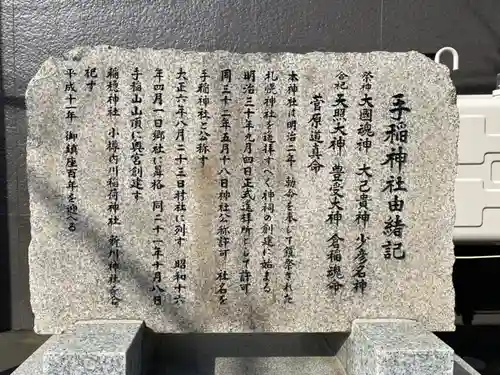 手稲神社由緒記
祭神 大國魂神 大己貴神 少彦名神
合祀 天照大神 豊受大神 倉稲魂命
菅原道真命
本神社は明治二年 勅命を奉じて鎮祭された
札幌神社を遥拝すべく神祠の創建に始まる
明治三十年九月四日正式遥拝所として許可
同三十二年五月十八日神社公称許可 社名を
手稲神社と公称す
大正六年八月二十三日村社に列す 昭和十六
年四月一日郷社に昇格 同二十一年十月八日
手稲山山頂に奥宮創建す
稲穂神社 小樽内川稲荷神社 新川神社を合
祀す
平成十一年 御鎮座百年を迎える